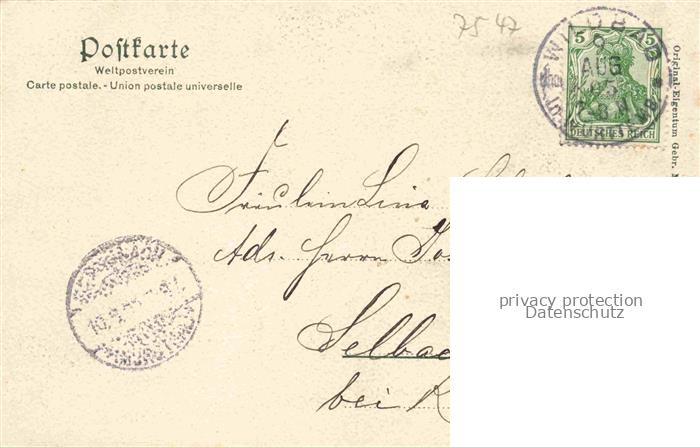 75 47
Postkarte
Weltpostverein
Carte postale. - Union postale universelle
5 5
WILDBAD
9
AUG
05
DEUTSCHES REICH
Original-Eigentum Gebr. M
Fräulein Lina
Adr. Herrn
Selbac
bei
10.
privacy protection
Datenschutz